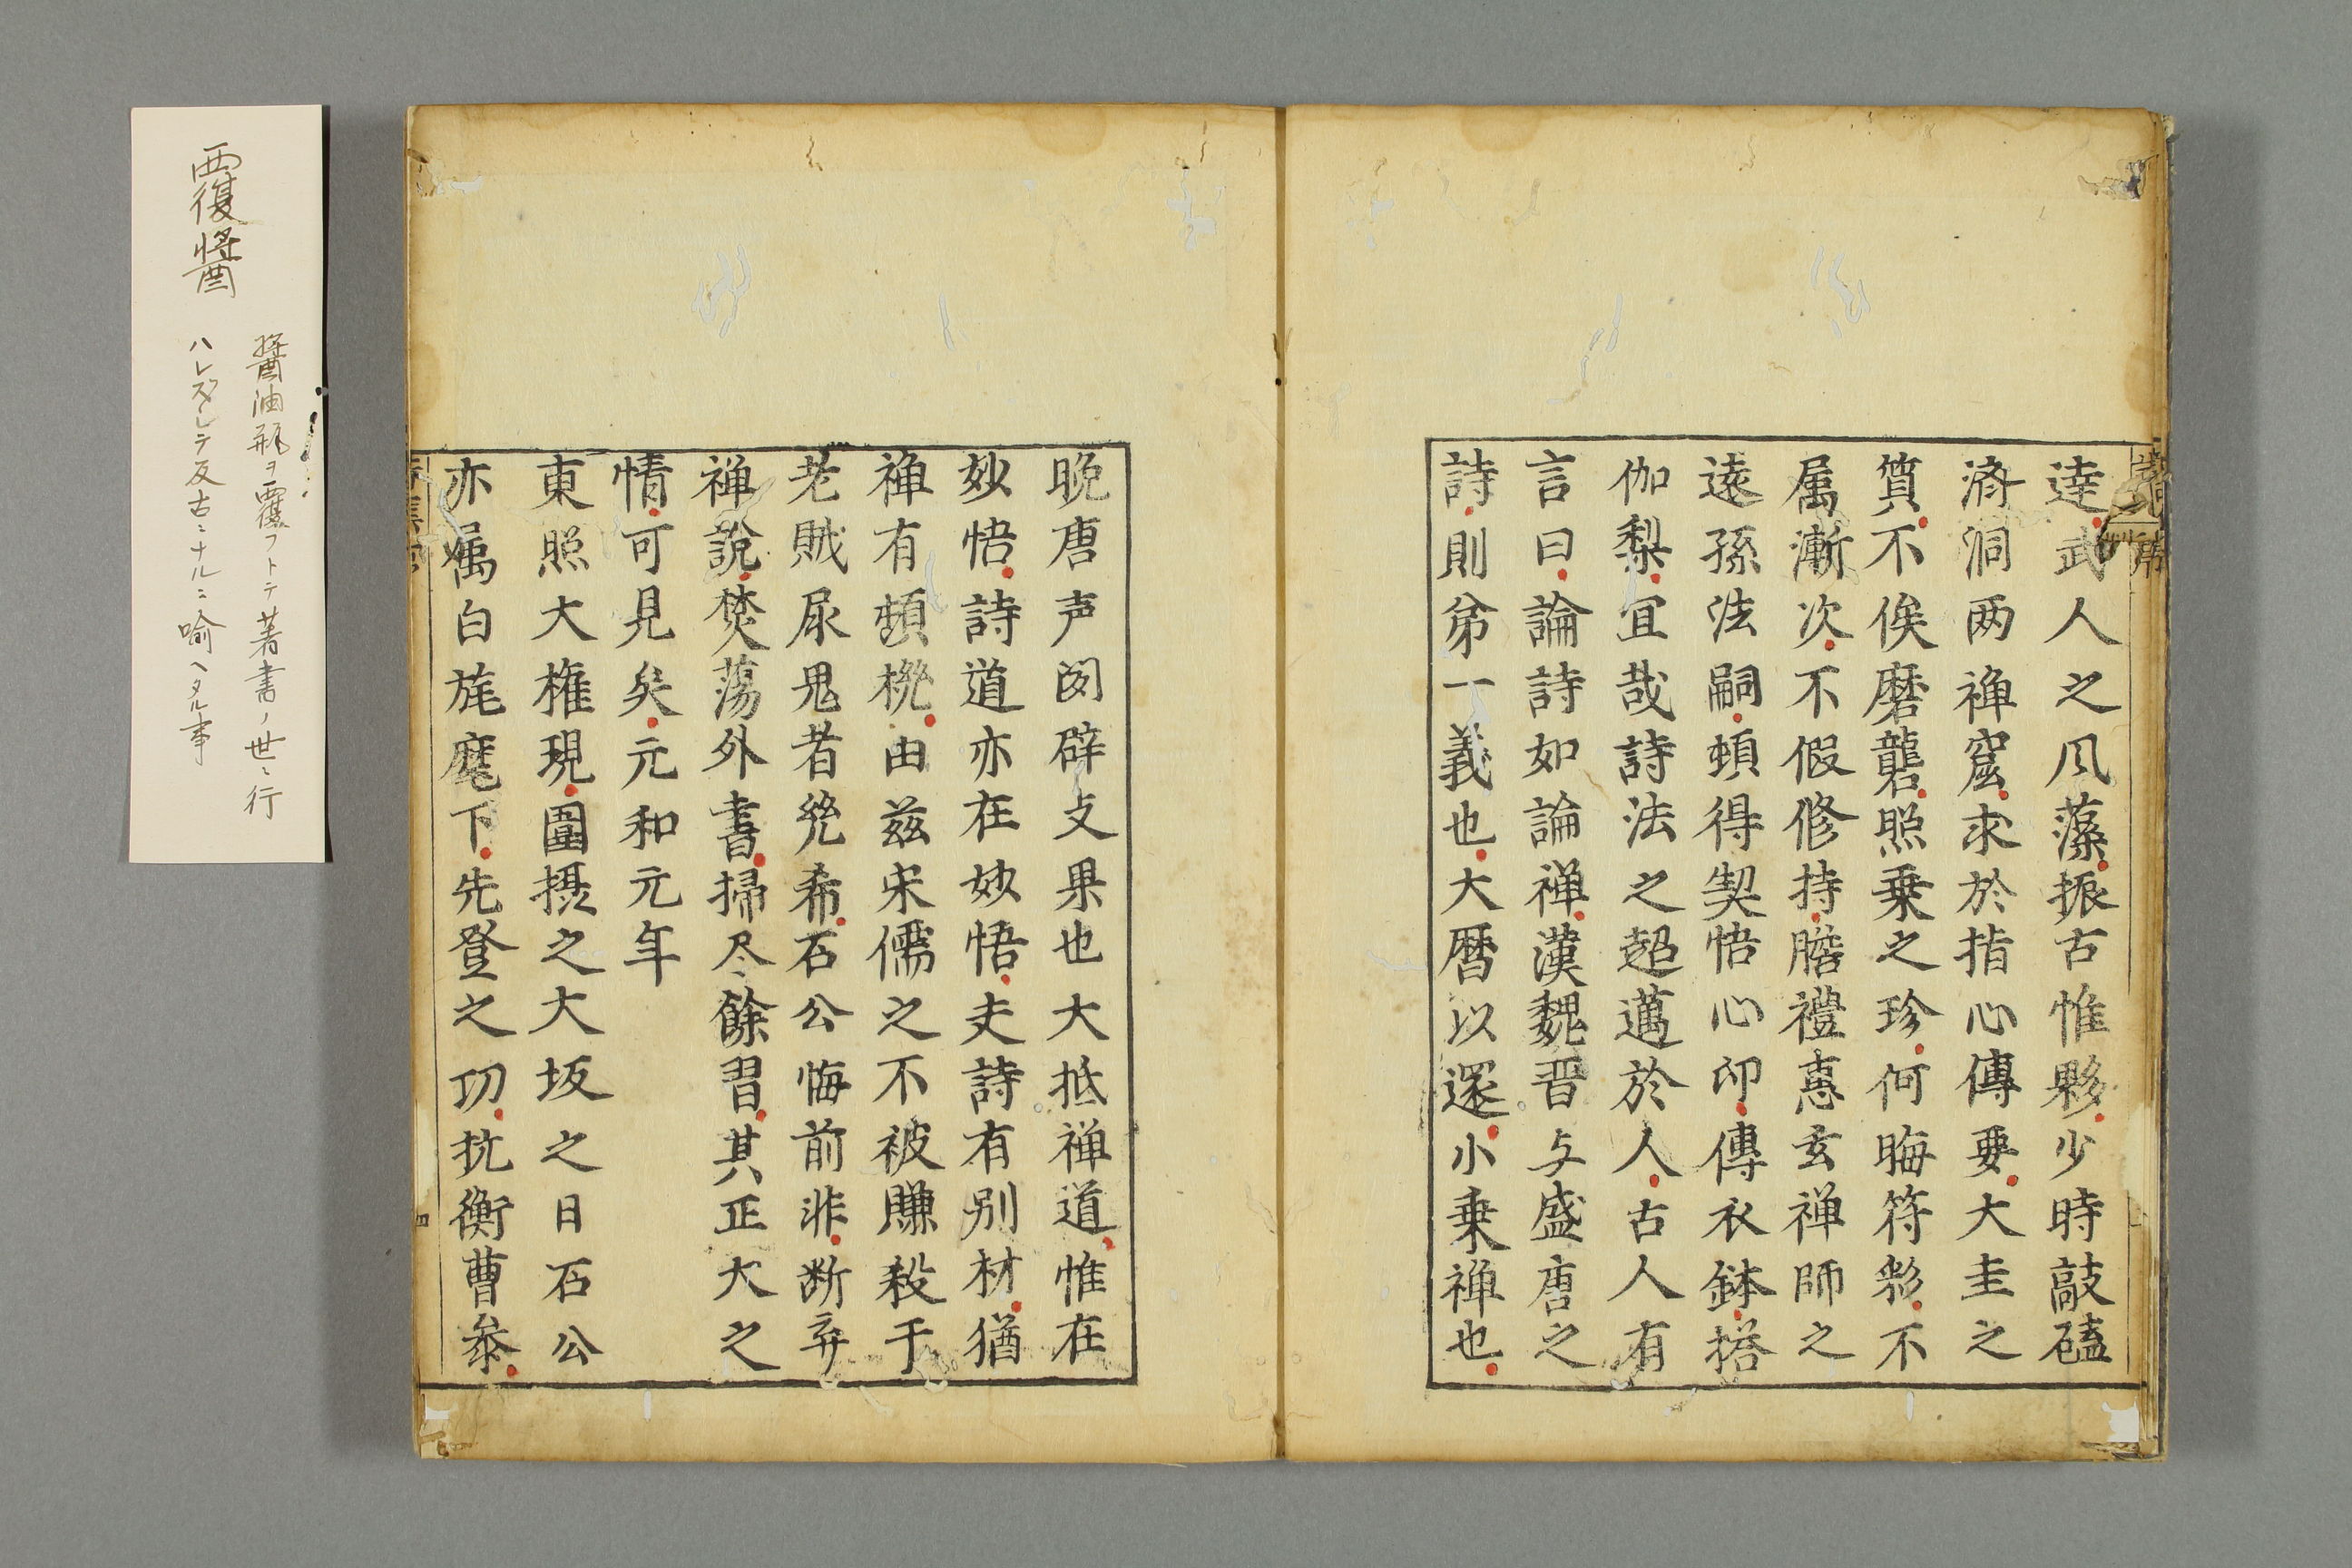 達武人之风藻振古惟夥少時敲磕
済洞两禅窟求於指心傳要大圭之
質不俟磨礱照乗之珍何晦符彩不
属漸次不假修持瞻禮憓玄禅師之
遠孫法嗣頓得契悟心印傳衣鉢搭
伽梨宜哉詩法之超邁於人古人有
言曰論詩如論禅漢魏晋与盛唐之
詩則第一義也大暦以還小乗禅也
晩唐声闻辟支果也大抵禅道惟在
妙悟詩道亦在妙悟夫詩有别材猶
禅有頓機由茲宋儒之不被賺殺于
老賊尿鬼者幾希石公悔前非断弃
禅說焚蕩外書掃尽餘習其正大之
情可見矣元和元年
東照大権現圍摂之大坂之日石公
亦属白旄麾下先登之功抗衡曹参
覆醤
醤油瓶ヲ覆フトテ著書ノ世ニ行
ハレズシテ反古ニナルニ喩ヘタル事